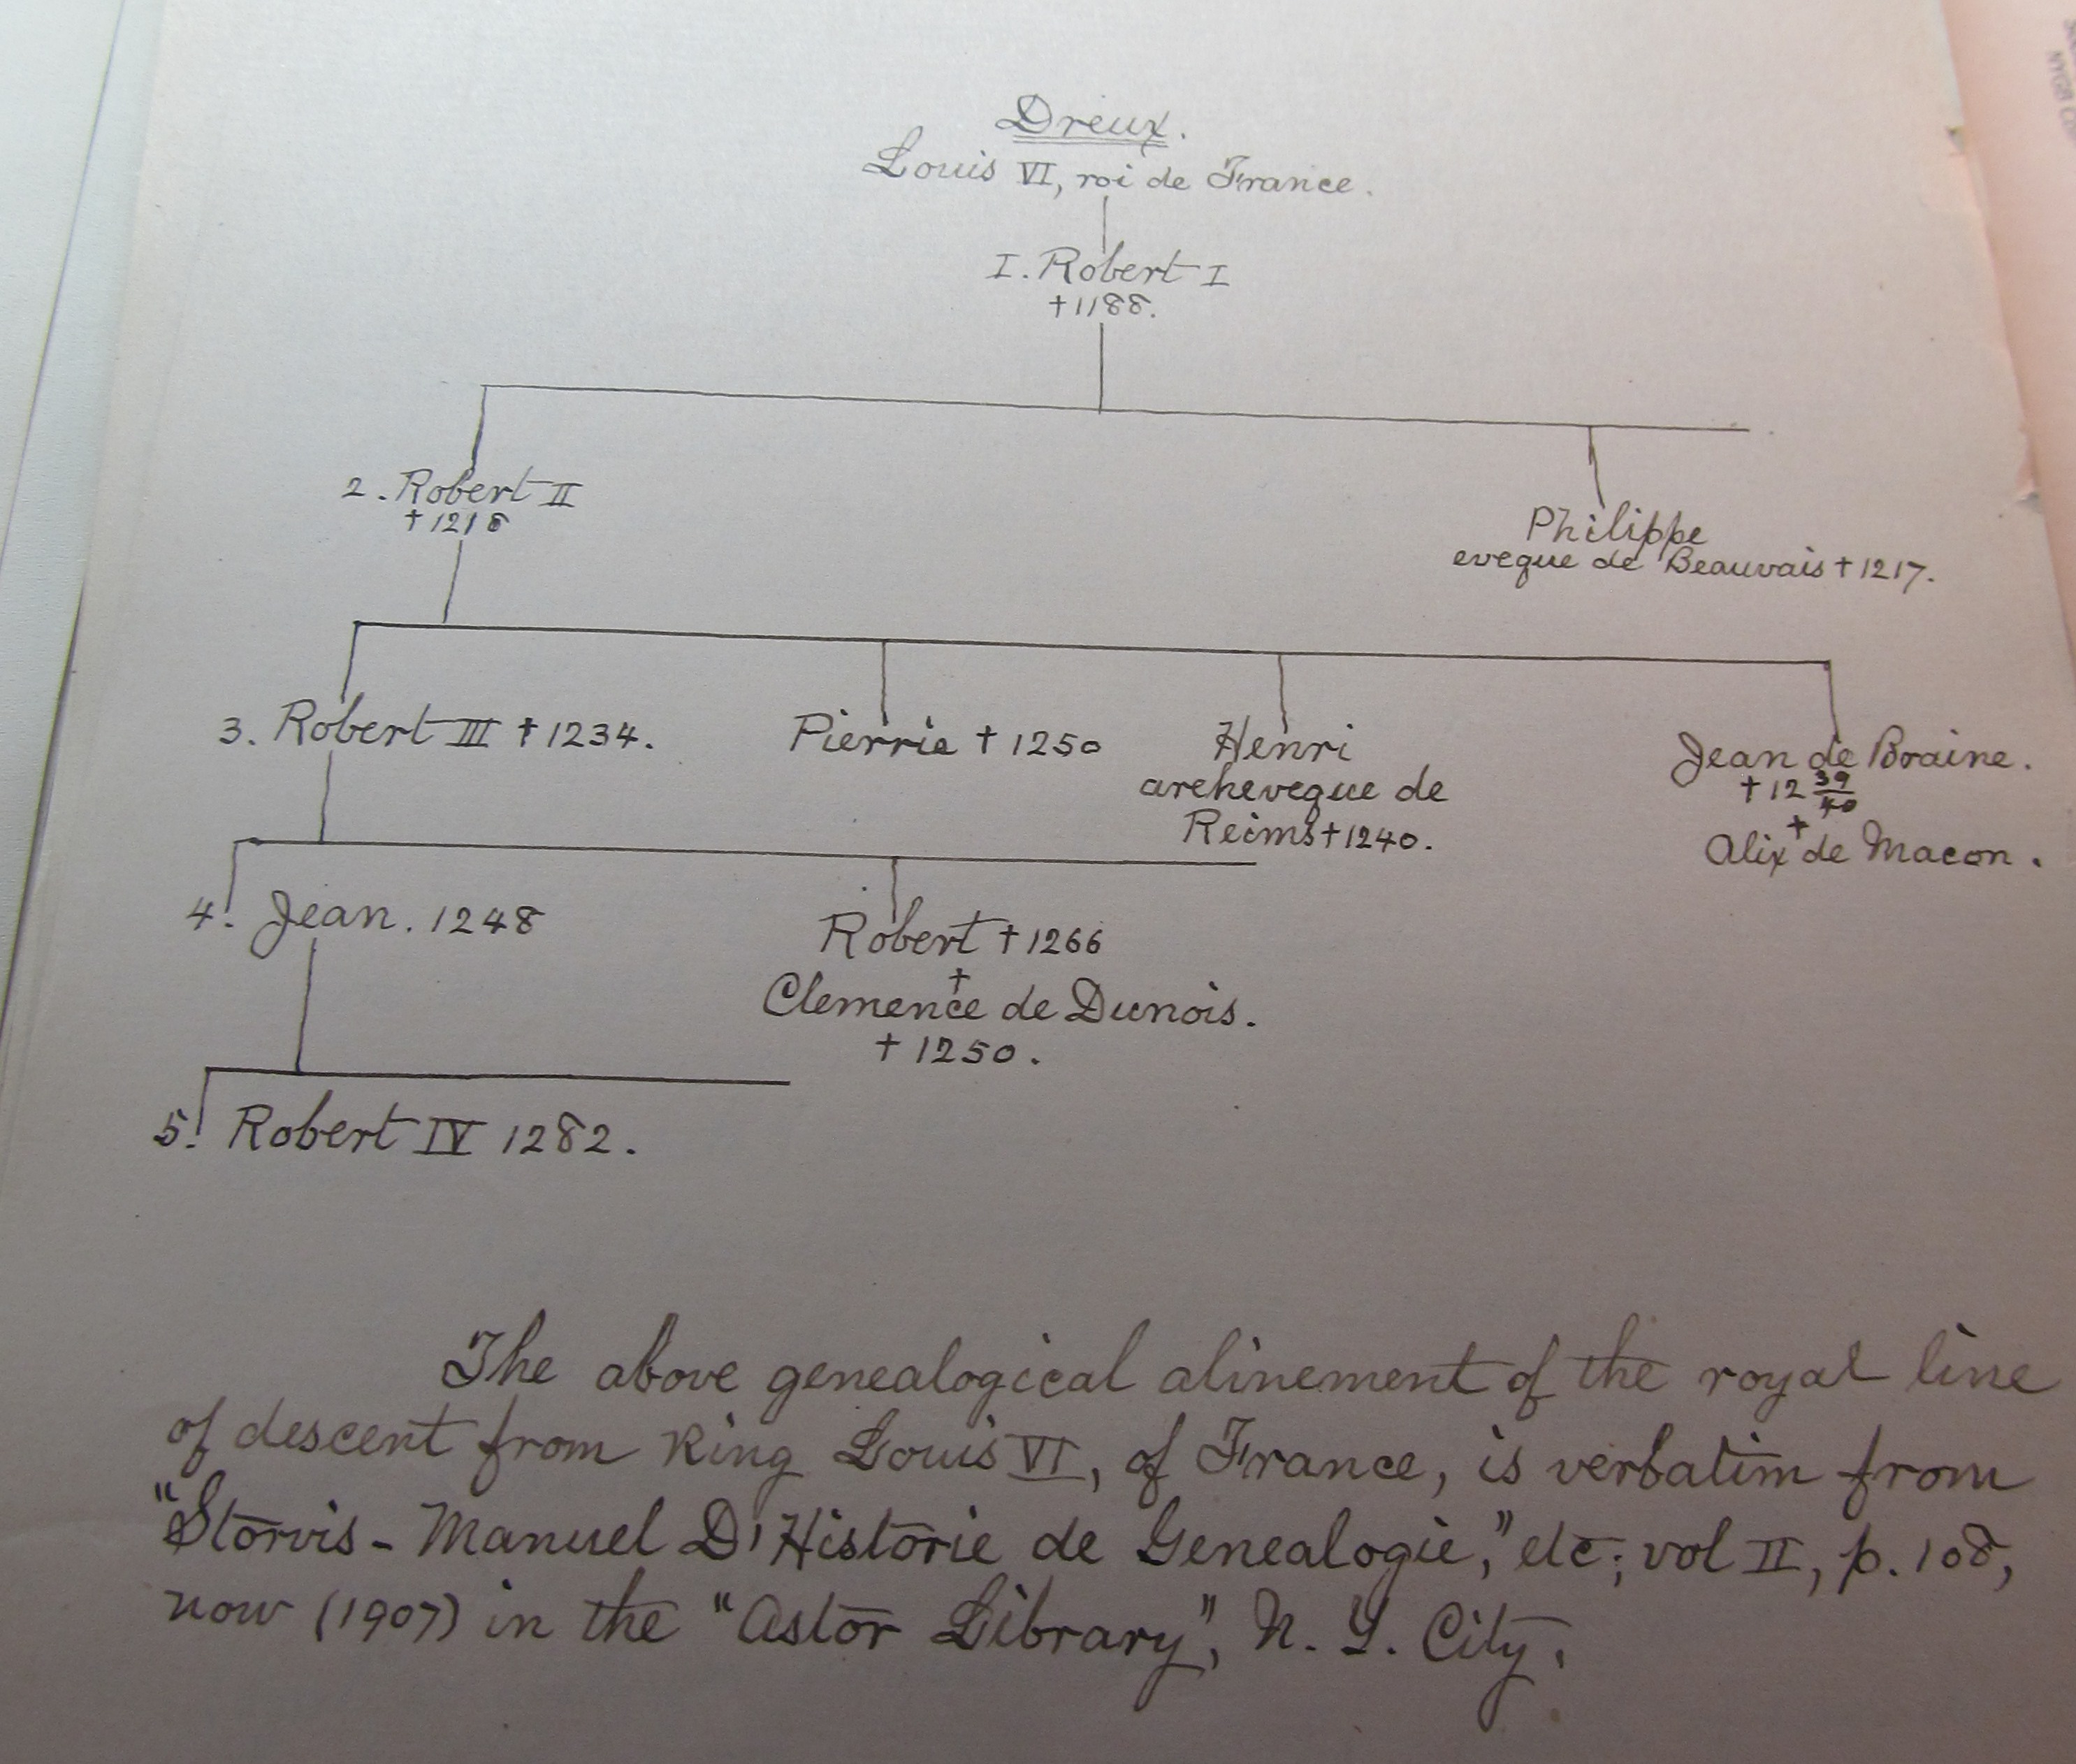 Dreux.
Louis VI, roi de France.
I. Robert I
†1188.
2. Robert II
†1218
Philippe
eveque de Beauvais †1217.
3. Robert III †1234.
Pierrie †1250
Henri
archeveque de
Reims †1240.
Jean de Braine.
†12 39/40
†
Alix de Macon.
4. Jean. 1248
Robert †1266
†
Clemence de Dunois.
†1250.
5. Robert IV 1282.
The above genealogical alinement of the royal line
of descent from King Louis VI, of France, is verbatim from
"Storvis - Manuel D'Historie de Genealogie," etc; vol II, p. 108,
now (1907) in the "Astor Library", N. Y. City.